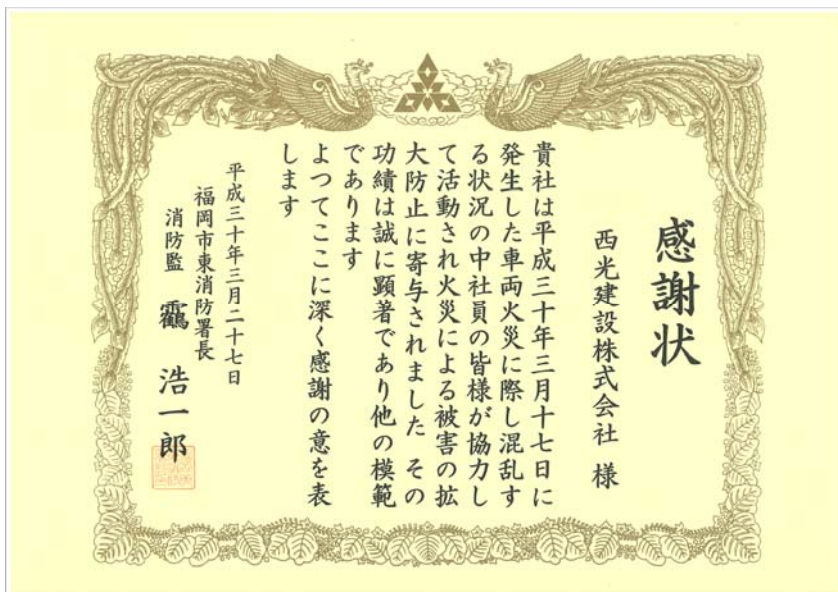 感謝状
西光建設株式会社 様
貴社は平成三十年三月十七日に
発生した車両火災に際し混乱す
る状況の中社員の皆様が協力し
て活動され火災による被害の拡
大防止に寄与されました その
功績は誠に顕著であり他の模範
であります
よつてここに深く感謝の意を表
します
平成三十年三月二十七日
福岡市東消防署長
消防監 靍 浩一郎